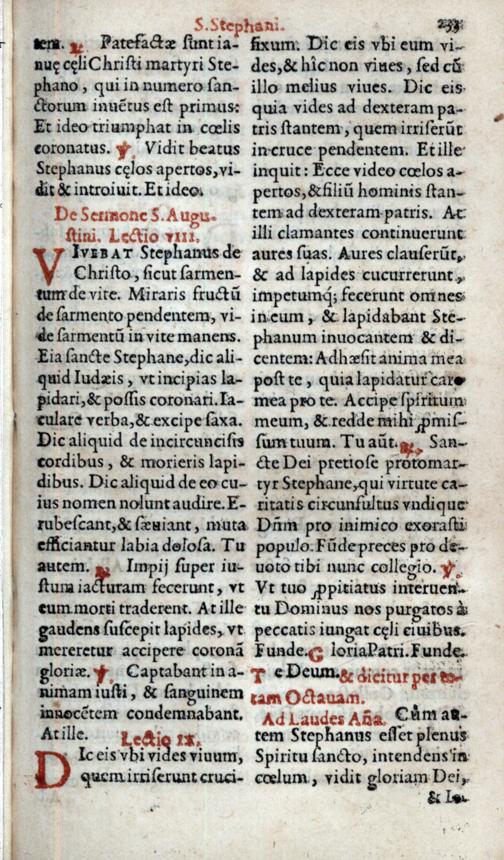 S. Stephani. 233
tem. ℟. Patefactæ sunt ia-
nuę cęli Christi martyri Ste-
phano, qui in numero san-
ctorum inuẽtus est primus:
Et ideo triumphat in cœlis
coronatus. ℣. Vidit beatus
Stephanus cęlos apertos, vi-
dit & introiuit. Et ideo.
De Sermone S. Augu-
stini. Lectio VIII.
VIVEBAT Stephanus de
Christo, sicut sarmen-
tum de vite. Miraris fructũ
de sarmento pendentem, vi-
de sarmentũ in vite manens.
Eia sancte Stephane, dic ali-
quid Iudæis, vt incipias la-
pidari, & possis coronari. Ia-
culare verba, & excipe saxa.
Dic aliquid de incircuncisis
cordibus, & morieris lapi-
dibus. Dic aliquid de eo cu-
ius nomen nolunt audire. E-
rubescant, & sæuiant, muta
efficiantur labia dolosa. Tu
autem. ℟. Impij super iu-
stum iacturam fecerunt, vt
eum morti traderent. At ille
gaudens suscepit lapides, vt
mereretur accipere coronã
gloriæ. ℣. Captabant in a-
nimam iusti, & sanguinem
innocẽtem condemnabant.
At ille.
Lectio IX.
DIc eis vbi vides viuum,
quem irriserunt cruci-
fixum. Dic eis vbi eum vi-
des, & hîc non viues, sed cũ
illo melius viues. Dic eis
quia vides ad dexteram pa-
tris stantem, quem irriserũt
in cruce pendentem. Et ille
inquit: Ecce video cœlos a-
pertos, & filiũ hominis stan-
tem ad dexteram patris. At
illi clamantes continuerunt
aures suas. Aures clauserũt,
& ad lapides cucurrerunt,
impetumq; fecerunt omnes
in eum, & lapidabant Ste-
phanum inuocantem & di-
centem: Adhæsit anima mea
post te, quia lapidatur caro
mea pro te. Accipe spiritum
meum, & redde mihi ꝓmis-
sum tuum. Tu aũt. ℟. San-
cte Dei pretiose protomar-
tyr Stephane, qui virtute ca-
ritatis circunfultus vndique
Dñm pro inimico exorasti
populo. Fũde preces pro de-
uoto tibi nunc collegio. ℣.
Vt tuo ꝓpitiatus interuen-
tu Dominus nos purgatos à
peccatis iungat cęli ciuibus.
Funde. Gloria Patri. Funde.
Te Deum. & dicitur per to-
tam Octauam.
Ad Laudes Aña. Cũm au-
tem Stephanus esset plenus
Spiritu sancto, intendens in
cœlum, vidit gloriam Dei,